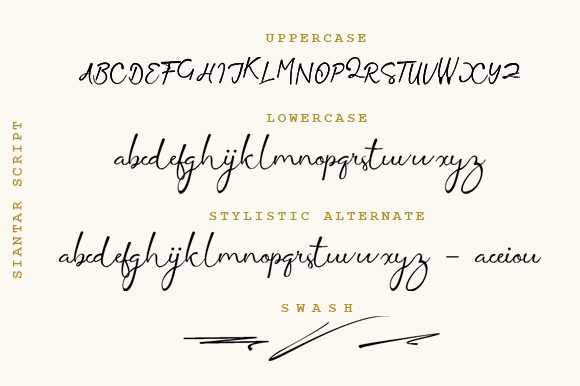 UPPERCASE
ABCDEFGHIJKLMNOPQRSTUVWXYZ
LOWERCASE
abcdefghijklmnopqrstuvwxyz
SIANTAR SCRIPT
STYLISTIC ALTERNATE
abcdefghijklmnopqrstuvwxyz – aceiou
SWASH